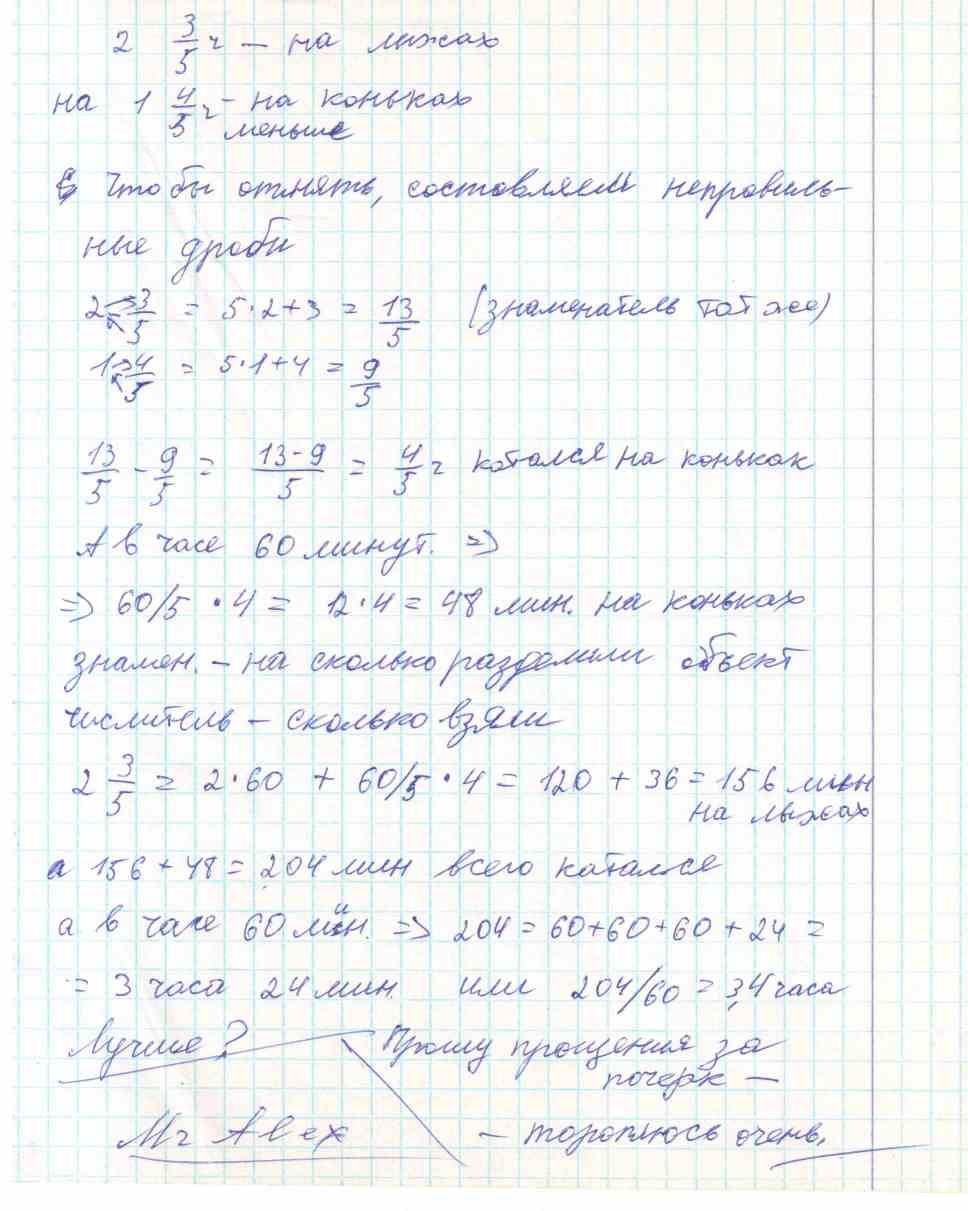 2 3/5 ч — на лыжах
на 1 4/5 ч - на коньках
меньше
Чтобы отнять, составляем неправиль-
ные дроби
2 3/5 = 5·2+3 = 13/5 (знаменатель тот же)
1 4/5 = 5·1+4 = 9/5
13/5 - 9/5 = 13-9/5 = 4/5 ч катался на коньках
А в часе 60 минут. =>
=> 60/5 · 4 = 12·4 = 48 мин. на коньках
знамен. — на сколько разделили объект
числитель — сколько взяли
2 3/5 = 2·60 + 60/5 · 4 = 120 + 36 = 156 мин
на лыжах
а 156 + 48 = 204 мин всего катался
а в часе 60 мин. => 204 = 60+60+60+24 =
= 3 часа 24 мин. или 204/60 = 3,4 часа
Лучше? Прошу прощения за
почерк —
Mr Alex — тороплюсь очень.